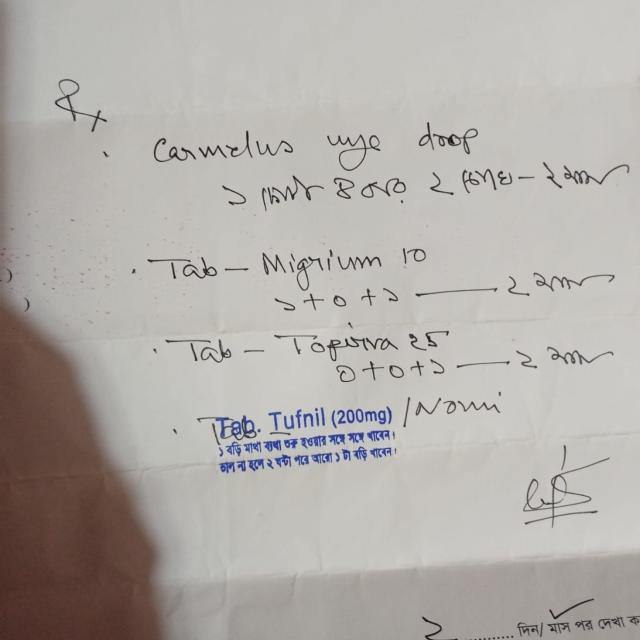 Rx
Carmelus eye drop
১ ফোটা ৪ বার ২ চোখে – ২ মাস
Tab – Migrium 10
১ + ০ + ১ —— ২ মাস
Tab – Topirva 25
০ + ০ + ১ —— ২ মাস
Tab. Tufnil (200mg) / Nomi
১ বড়ি মাথা ব্যথা শুরু হওয়ার সঙ্গে সঙ্গে খাবেন।
ভাল না হলে ২ ঘন্টা পরে আরো ১ টা বড়ি খাবেন।
২ ........ দিন/ মাস পর দেখা